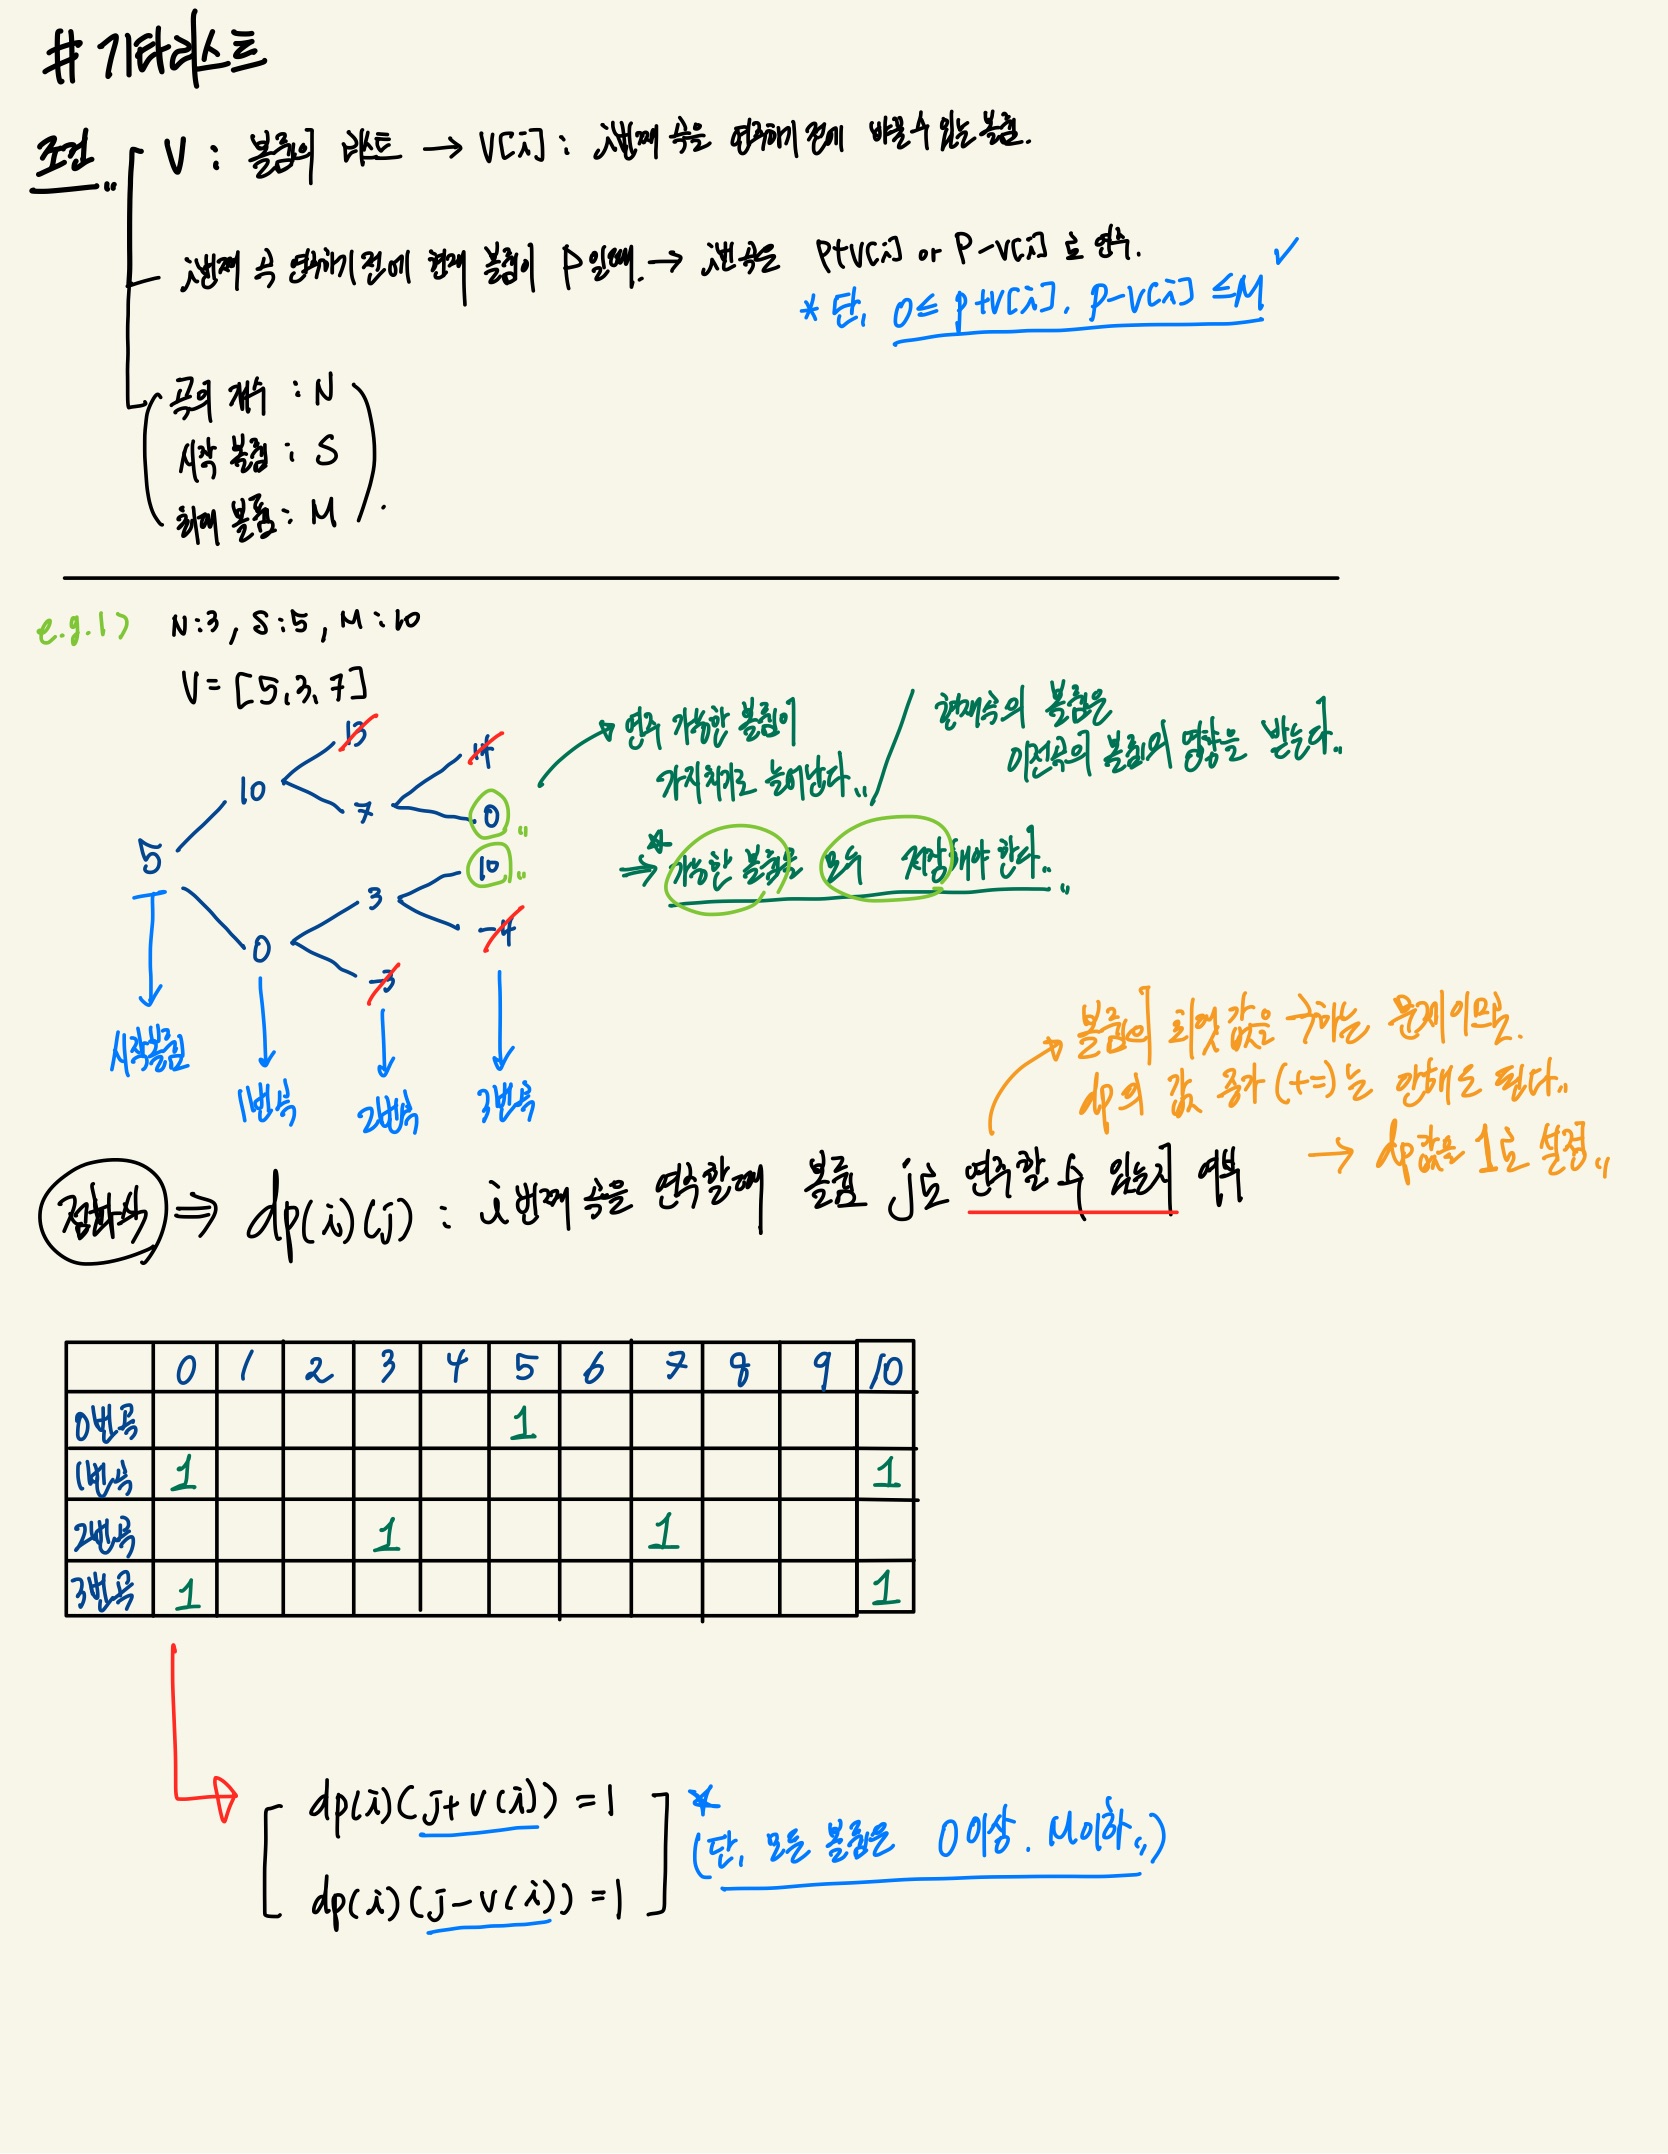 # 기타리스트
조건
V : 볼륨의 리스트 → V[i] : i번째 곡을 연주하기 전에 바꿀 수 있는 볼륨.
i번째 곡 연주하기 전에 현재 볼륨이 P일때. → i번 곡은 P+V[i] or P-V[i] 로 연주.
* 단, 0≤ P+V[i], P-V[i] ≤M
곡의 개수 : N
시작 볼륨 : S
최대 볼륨 : M
e.g.1) N:3, S:5, M:10
V = [5, 3, 7]
연주 가능한 볼륨이
가지치기로 늘어난다..
현재곡의 볼륨은
이전곡의 볼륨의 영향을 받는다..
⇒ 가능한 볼륨을 모두 저장해야 한다..
13
14
10
7
0
5
10
3
-4
0
-3
시작볼륨
1번곡
2번곡
3번곡
볼륨의 최댓값을 구하는 문제이므로.
dp의 값 증가 (+=)는 안해도 된다..
→ dp값을 1로 설정..
점화식 ⇒ dp(i)(j) : i번째 곡을 연주할때 볼륨 j로 연주할 수 있는지 여부
0 1 2 3 4 5 6 7 8 9 10
0번곡 1
1번곡 1 1
2번곡 1 1
3번곡 1 1
dp(i)(j+v(i)) = 1
dp(i)(j-v(i)) = 1
* (단, 모든 볼륨은 0이상. M이하..)